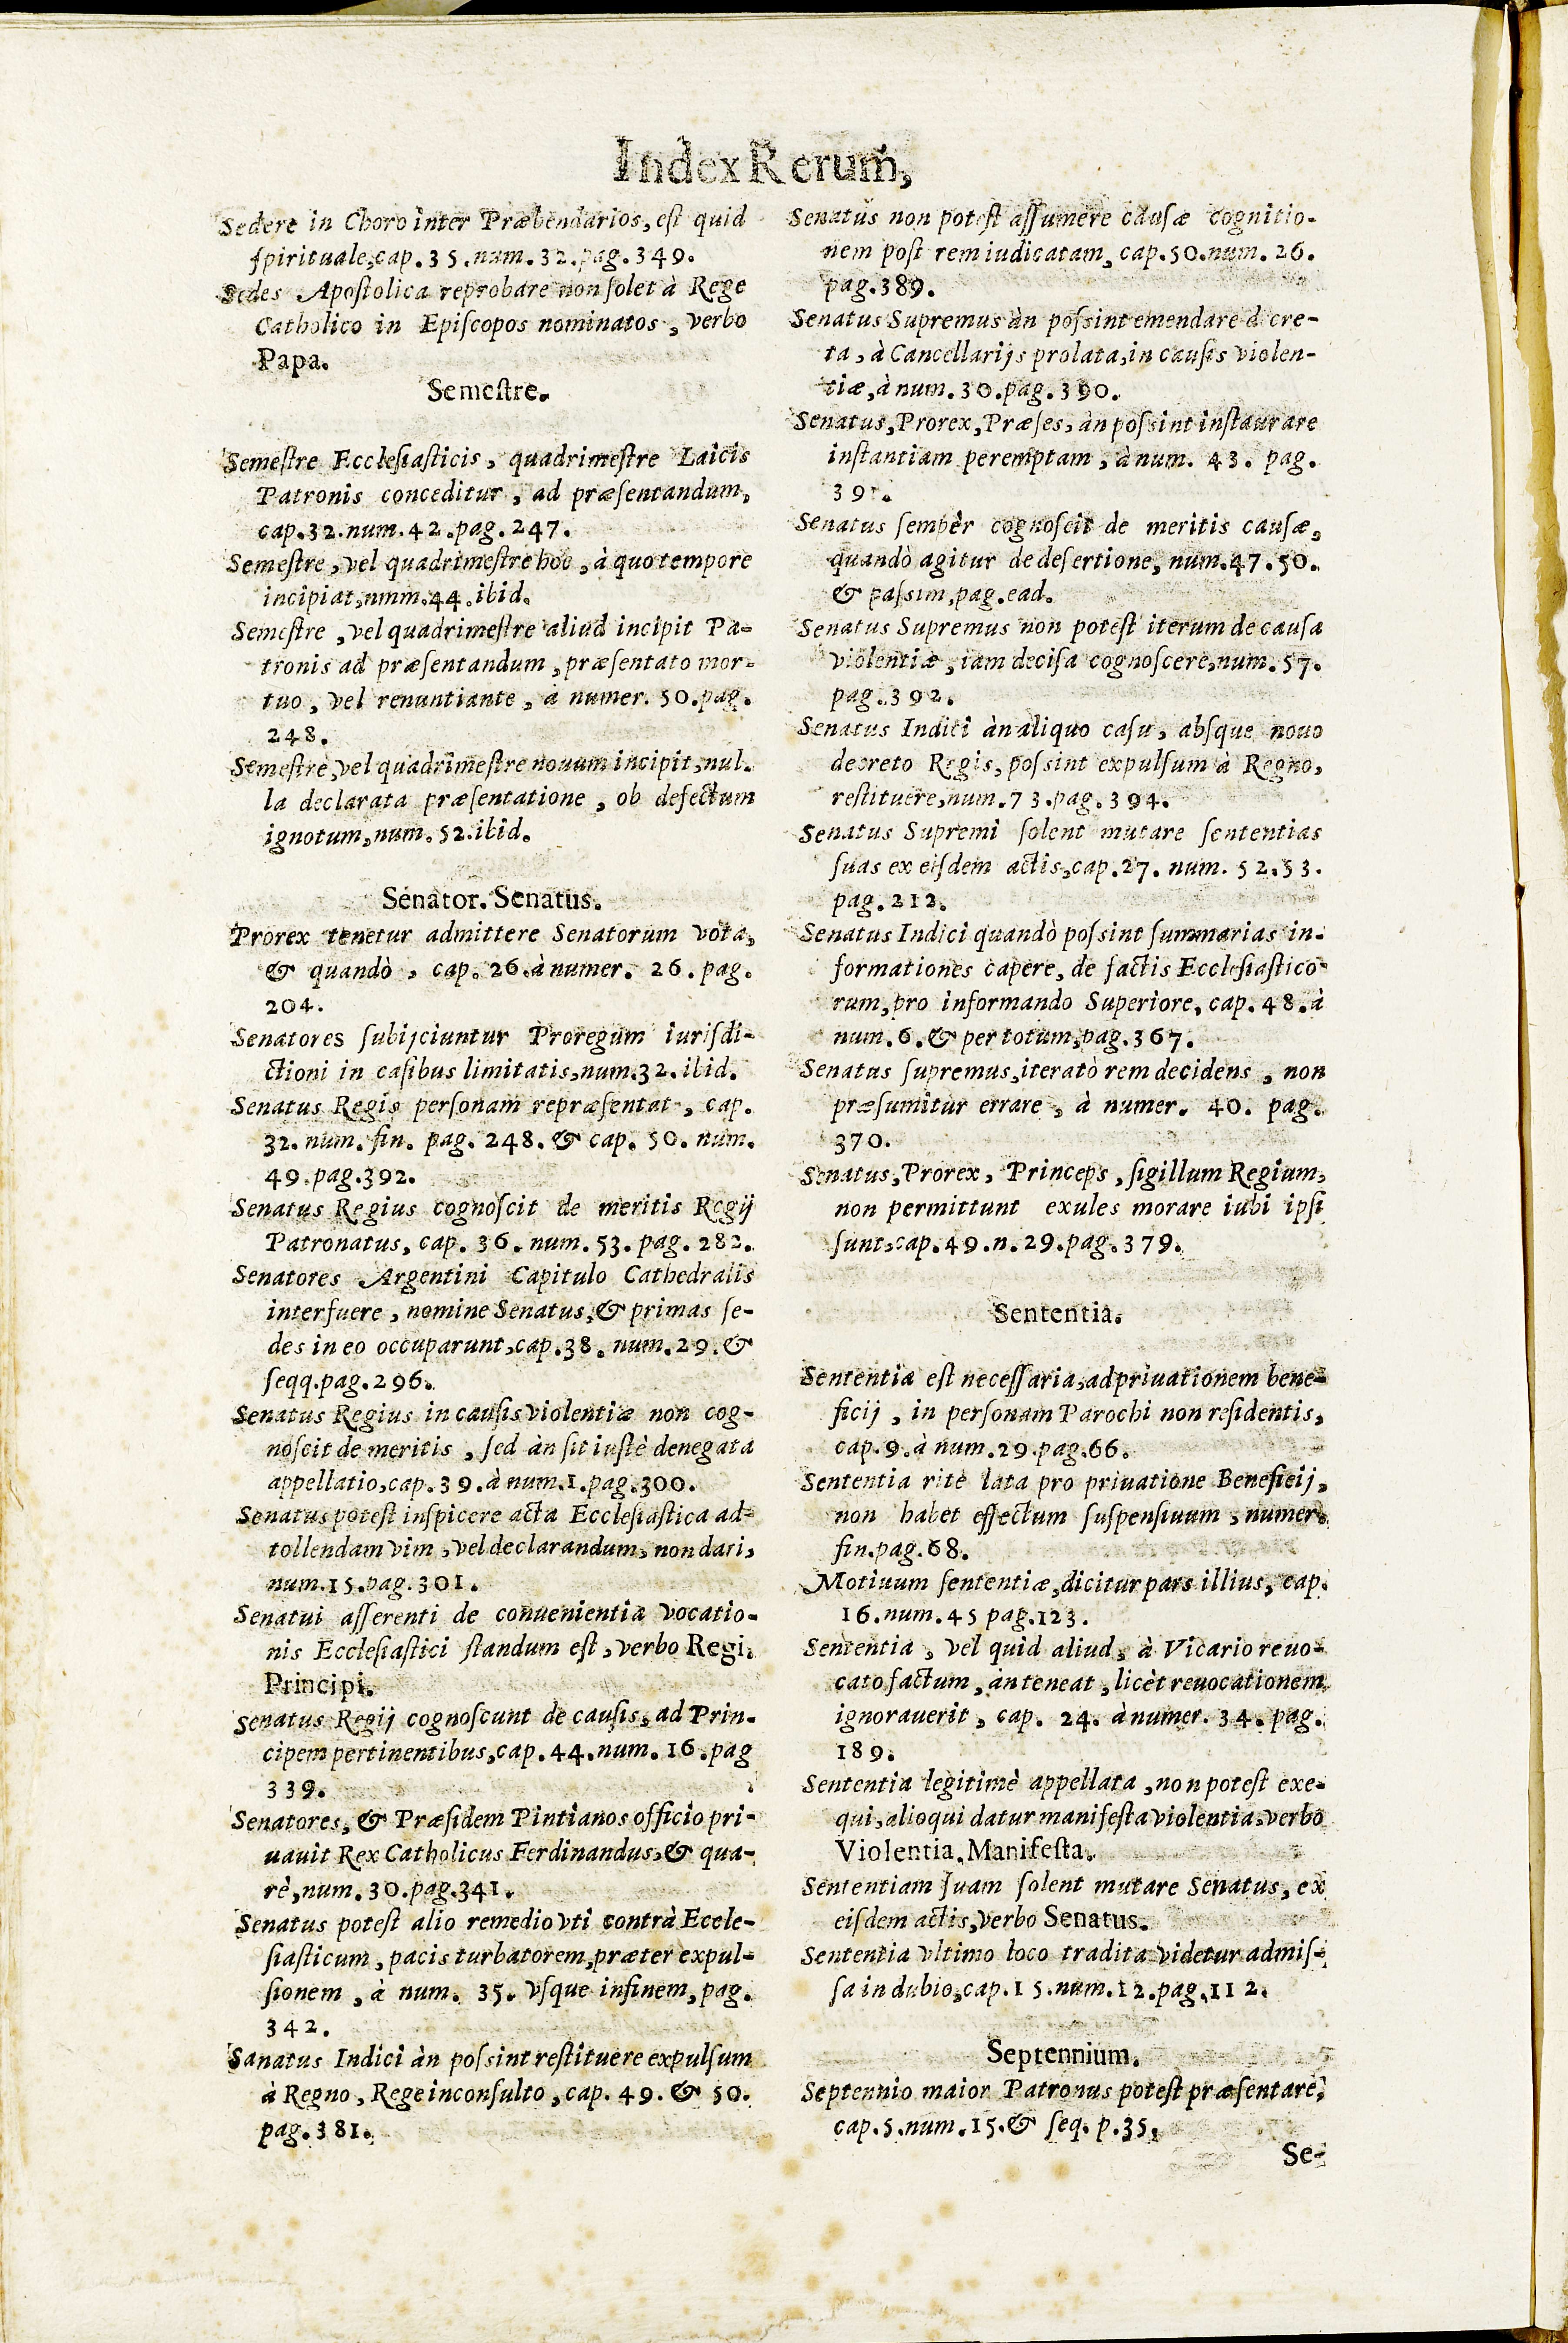 Index Rerum,
Sedere in Choro inter Præbendarios, est quid
spirituale, cap. 35. num. 32. pag. 349.
Sedes Apostolica reprobare non solet à Rege
Catholico in Episcopos nominatos, verbo
Papa.
Semestre.
Semestre Ecclesiasticis, quadrimestre Laicis
Patronis conceditur, ad præsentandum,
cap. 32. num. 42. pag. 247.
Semestre, vel quadrimestre hoc, à quo tempore
incipiat, nmm. 44. ibid.
Semestre, vel quadrimestre aliud incipit Pa-
tronis ad præsentandum, præsentato mor-
tuo, vel renuntiante, à numer. 50. pag.
248.
Semestre, vel quadrimestre nouum incipit, nul-
la declarata præsentatione, ob defectum
ignotum, num. 52. ibid.
Senator. Senatus.
Prorex tenetur admittere Senatorum vota,
& quandò, cap. 26. à numer. 26. pag.
204.
Senatores subijciuntur Proregum iurisdi-
ctioni in casibus limitatis, num. 32. ibid.
Senatus Regis personam repræsentat, cap.
32. num. fin. pag. 248. & cap. 50. num.
49. pag. 392.
Senatus Regius cognoscit de meritis Regij
Patronatus, cap. 36. num. 53. pag. 282.
Senatores Argentini Capitulo Cathedralis
interfuere, nomine Senatus, & primas se-
des in eo occuparunt, cap. 38. num. 29. &
seqq. pag. 296.
Senatus Regius in causis violentiæ non cog-
noscit de meritis, sed àn sit iustè denegata
appellatio, cap. 39. à num. 1. pag. 300.
Senatus potest inspicere acta Ecclesiastica ad-
tollendam vim, vel declarandum, non dari,
num. 15. pag. 301.
Senatui asserenti de conuenientia vocatio-
nis Ecclesiastici standum est, verbo Regi.
Principi.
Senatus Regij cognoscunt de causis, ad Prin-
cipem pertinentibus, cap. 44. num. 16. pag
339.
Senatores, & Præsidem Pintianos officio pri-
uauit Rex Catholicus Ferdinandus, & qua-
rè, num. 30. pag. 341.
Senatus potest alio remedio vti contrà Eccle-
siasticum, pacis turbatorem, præter expul-
sionem, à num. 35. vsque in finem, pag.
342.
Sanatus Indici àn possint restituere expulsum
à Regno, Rege inconsulto, cap. 49. & 50.
pag. 381.
Senatus non potest assumere causæ cognitio-
nem post rem iudicatam, cap. 50. num. 26.
pag. 389.
Senatus Supremus àn possint emendare d cre-
ta, à Cancellarijs prolata, in causis violen-
tiæ, à num. 30. pag. 390.
Senatus, Prorex, Præses, àn possint instaurare
instantiam peremptam, à num. 43. pag.
391.
Senatus sempèr cognoscit de meritis causæ,
quandò agitur de desertione, num. 47. 50.
& passim, pag. ead.
Senatus Supremus non potest iterum de causa
violentiæ, iam decisa cognoscere, num. 57.
pag. 392.
Senatus Indici àn aliquo casu, absque nouo
decreto Regis, possint expulsum à Regno,
restituere, num. 73. pag. 394.
Senatus Supremi solent mutare sententias
suas ex eisdem actis, cap. 27. num. 52. 53.
pag. 212.
Senatus Indici quandò possint summarias in-
formationes capere, de factis Ecclesiastico-
rum, pro informando Superiore, cap. 48. à
num. 6. & per totum, pag. 367.
Senatus supremus, iteratò rem decidens, non
præsumitur errare, à numer. 40. pag.
370.
Senatus, Prorex, Princeps, sigillum Regium,
non permittunt exules morare iubi ipsi
sunt, cap. 49. n. 29. pag. 379.
Sententia.
Sententia est necessaria, ad priuationem bene-
ficij, in personam Parochi non residentis,
cap. 9. à num. 29. pag. 66.
Sententia ritè lata pro priuatione Beneficij,
non habet effectum suspensiuum, numer.
fin. pag. 68.
Motiuum sententiæ, dicitur pars illius, cap.
16. num. 45 pag. 123.
Sententia, vel quid aliud, à Vicario reuo-
cato factum, an teneat, licèt reuocationem
ignorauerit, cap. 24. à numer. 34. pag.
189.
Sententia legitimè appellata, non potest exe-
qui, alioqui datur manifesta violentia, verbo
Violentia. Manifesta.
Sententiam suam solent mutare Senatus, ex
eisdem actis, verbo Senatus.
Sententia vltimo loco tradita videtur admis-
sa in dubio, cap. 15. num. 12. pag. 112.
Septennium.
Septennio maior Patronus potest præsentare,
cap. 5. num. 15. & seq. p. 35.
Se-